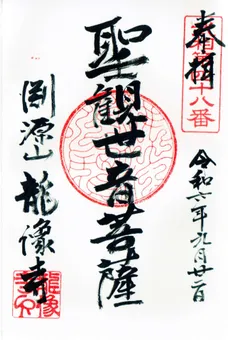 奉拝
十八番
令和六年九月廿二日
聖観世音菩薩
渕源山 龍像寺
龍像寺印